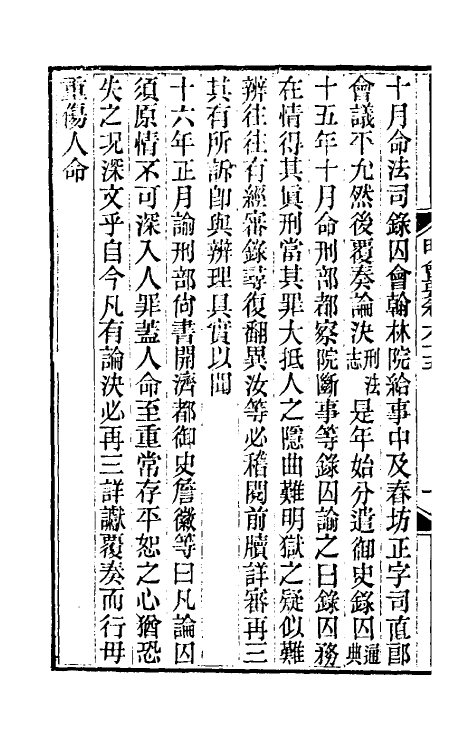 十月命法司錄囚會翰林院給事中及春坊正字司直郎
會議平允然後覆奏論決刑法志是年始分遣御史錄囚通典
十五年十月命刑部都察院斷事等錄囚諭之曰錄囚務
在情得其眞刑當其罪大抵人之隱曲難明獄之疑似難
辨往往有經審錄尋復翻異汝等必稽閱前牘詳審再三
其有所訴卽與辨理具實以聞
十六年正月諭刑部尙書開濟都御史詹徽等曰凡論囚
須原情不可深入人罪蓋人命至重常存平恕之心猶恐
失之況深文乎自今凡有論決必再三詳讞覆奏而行毋
重傷人命